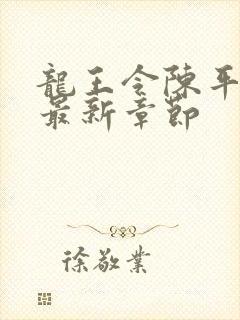 龍王令陳平
最新章節
徐敬業